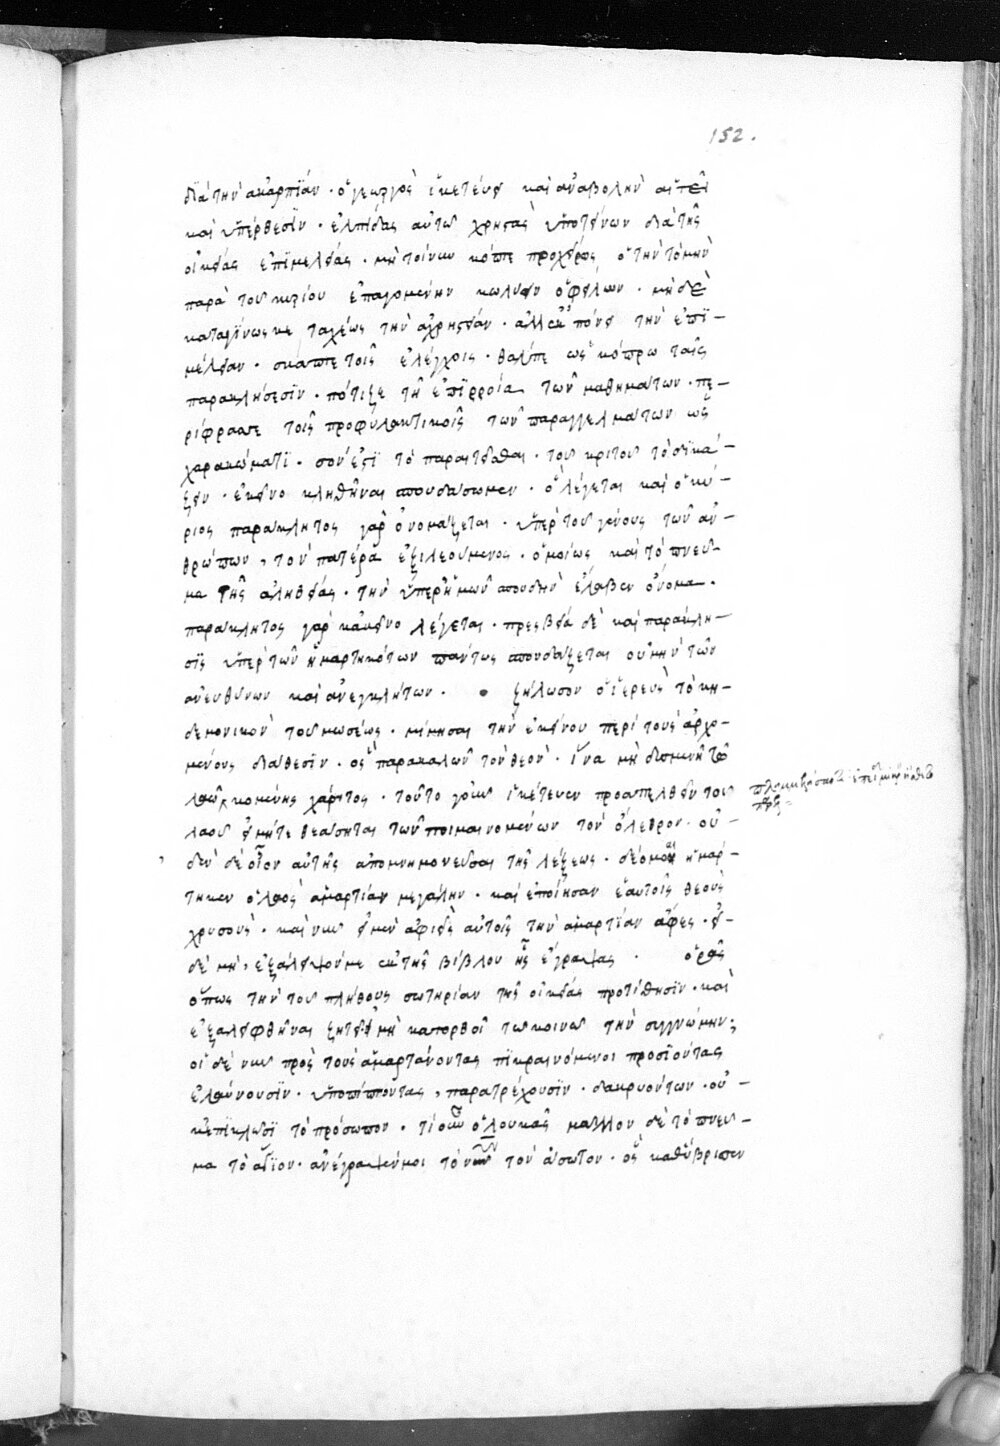 152.
διὰ τὴν ἀκαρπίαν · ὁ γεωργὸς ἱκετεύει καὶ ἀναβολὴν αἰτεῖ
καὶ ὑπέρθεσιν · ἐλπίδας αὐτῶ χρηστὰς ὑποτείνων διὰ τῆς
οἰκείας ἐπιμελείας · μὴ τοίνυν κόπτε προχείρως ὁ τὴν τομὴν
παρὰ τοῦ κυρίου ἐπαγομένην κωλύειν ὀφείλων · μὴ δὲ
καταγίνωσκε ταχέως τὴν ἀχρηστίαν · ἀλλ' ἐκ πόνει τὴν ἐπι–
μέλειαν · σκάπτε τοῖς ἐλέγχοις · θάλπε ὡς κόπρω ταῖς
παρακλήσεσιν · πότιζε τῆ ἐπιρροία τῶν μαθημάτων · πε–
ρίφραττε τοῖς προφυλακτικοῖς τῶν παραγγελμάτων ὡς
χαρακώματι · σόν ἐστι τὸ παραιτεῖσθαι · τοῦ κριτοῦ τὸ δικά–
ζειν · ἐκεῖνο κληθῆναι σπουδάσωμεν · ὃ λέγεται καὶ ὁ κύ–
ριος παράκλητος γὰρ ὀνομάζεται · ὑπὲρ τοῦ γένους τῶν ἀν–
θρώπων , τὸν πατέρα ἐξιλεούμενος · ὁμοίως καὶ τὸ πνεῦ–
μα τῆς ἀληθείας · τὴν ὑπὲρ ἡμῶν σπουδὴν ἔλαβεν ὄνομα ·
παράκλητος γὰρ κἀκεῖνο λέγεται · πρεσβεία δὲ καὶ παράκλη–
σις ὑπὲρ τῶν ἡμαρτηκότων πάντως σπουδάζεται οὐ μὴν τῶν
ἀνευθύνων καὶ ἀνεγκλήτων · • ζήλωσον ὁ ἱερεὺς τὸ κη–
δεμονικὸν τοῦ μωσέως · μίμησαι τὴν ἐκείνου περὶ τοὺς ἀρχο–
μένους διάθεσιν · ὃς παρακαλῶν τὸν θεὸν · ἵνα μὴ
χάριτος · τοῦτο γοῦν ἱκέτευεν προαπελθεῖν τοῦ
λαοῦ εἰ μήτε θεάσηται τῶν ποιμαινομένων τὸν ὄλεθρον · οὐ–
δὲν δὲ οἷον αὐτῆς ἀπομνημονεῦσαι τῆς λέξεως · δέομαι ἡμάρ–
τηκεν ὁ λαὸς ἁμαρτίαν μεγάλην · καὶ ἐποίησαν ἑαυτοῖς θεοὺς
χρυσοῦς · καὶ νῦν εἰ μὲν ἀφιεῖς αὐτοῖς τὴν ἁμαρτίαν ἄφες · εἰ–
δὲ μὴ , ἐξάλειψόν με ἐκ τῆς βίβλου ἧς ἔγραψας · ὁρᾶς
ὅπως τὴν τοῦ πλήθους σωτηρίαν τῆς οἰκείας προτίθησιν · καὶ
ἐξαλειφθῆναι ζητεῖ εἰ μὴ κατορθοῖ τῶ κοινῶ τὴν συγγνώμην ;
οἱ δὲ νῦν πρὸς τοὺς ἁμαρτάνοντας πικραινόμενοι προσιόντας
ἐλαύνουσιν · ὑποπίπτοντας , παρατρέχουσιν · δακρυόντων · οὐ–
κ ἐπικλῶσι τὸ πρόσωπον · τί οὖν ὁ λουκᾶς μᾶλλον δὲ τὸ πνεῦ–
μα τὸ ἅγιον · ἀνέγραψέ μοι τὸν τὸν ἄσωτον · ὃς καθύβρισεν